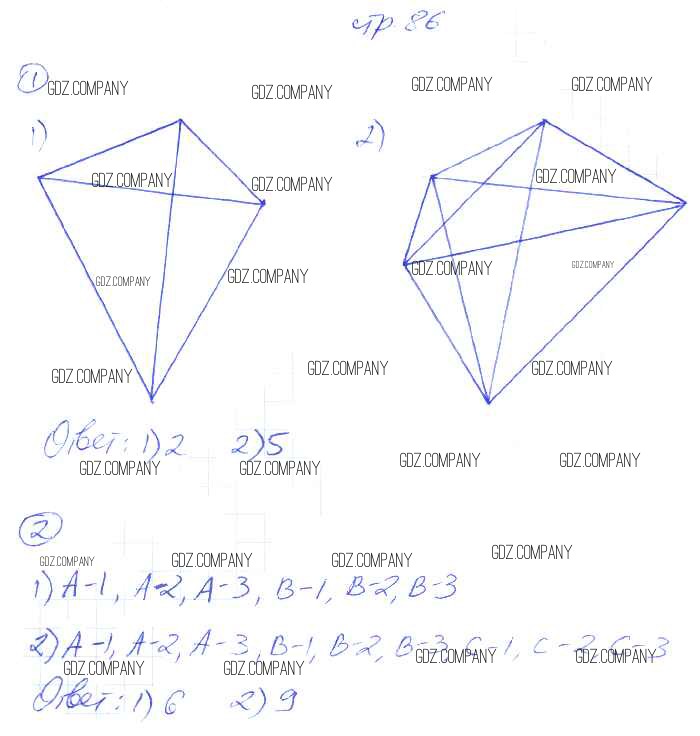 стр. 86
1
GDZ.COMPANY GDZ.COMPANY GDZ.COMPANY GDZ.COMPANY
1) 2)
GDZ.COMPANY GDZ.COMPANY GDZ.COMPANY
GDZ.COMPANY GDZ.COMPANY GDZ.COMPANY GDZ.COMPANY
GDZ.COMPANY GDZ.COMPANY GDZ.COMPANY
Ответ: 1) 2 2) 5
GDZ.COMPANY GDZ.COMPANY GDZ.COMPANY GDZ.COMPANY
2
GDZ.COMPANY GDZ.COMPANY GDZ.COMPANY GDZ.COMPANY
1) А-1, А-2, А-3, В-1, В-2, В-3
2) А-1, А-2, А-3, В-1, В-2, В-3, С-1, С-2, С-3
GDZ.COMPANY GDZ.COMPANY GDZ.COMPANY GDZ.COMPANY
Ответ: 1) 6 2) 9